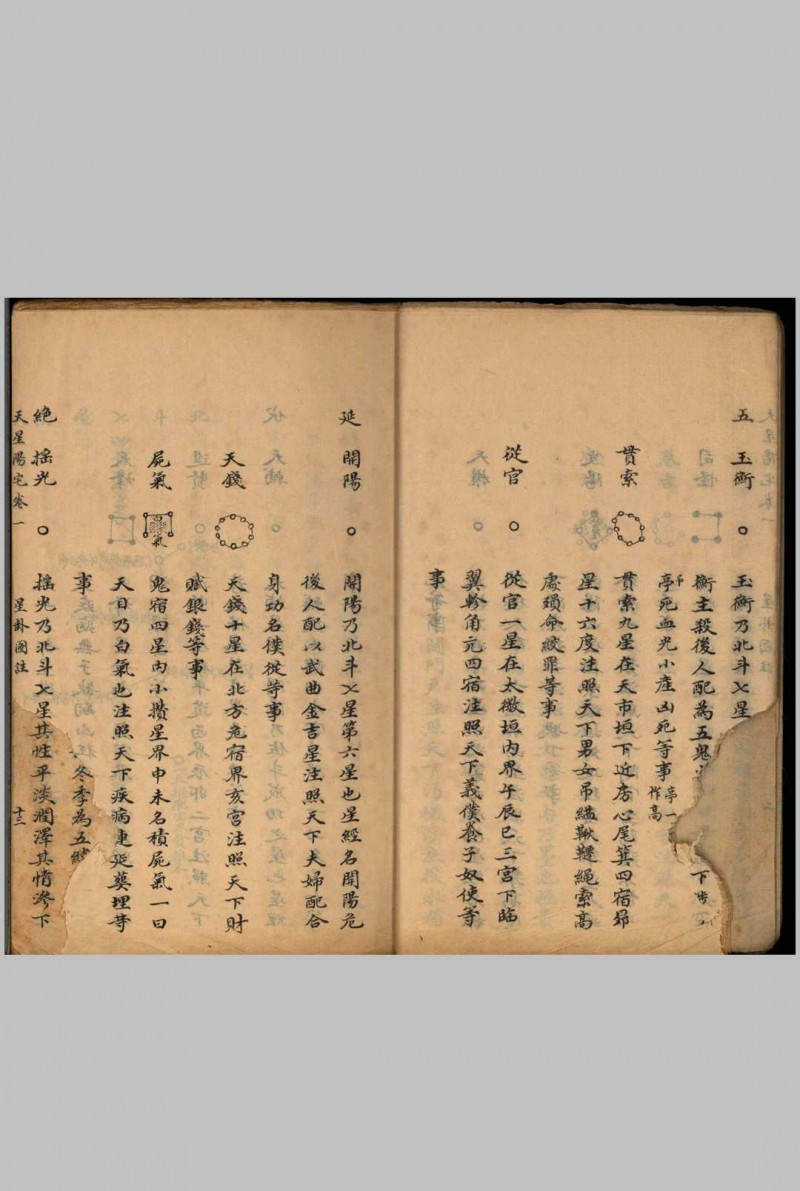 五 玉衡 玉衡乃北斗七星
衡主殺後人配為五鬼 下步
亭死血光小産凶死等事 亭一作高
貫索 貫索九星在天市垣下近房心尾箕四宿昴
星十六度注照天下男女吊縊鞦韆繩索高
處殞命絞罪等事
從官 從官一星在太微垣内界午辰巳三宮下臨
翼軫角亢四宿注照天下義僕養子奴使等
事
延 開陽 開陽乃北斗七星第六星也星經名開陽危
後人配以武曲金吉星注照天下夫婦配合
身功名僕從等事
天錢 天錢十星在北方危宿界亥宮注照天下財
賦銀錢等事
屍氣 白氣 鬼宿四星内小攢星界申未名積屍氣一曰
天目乃白氣也注照天下疾病連延葬埋等
事 冬季為五
絶 揺光 揺光乃北斗七星其性平淡潤澤其情滲下
天星陽宅卷一 星卦圖註 十三